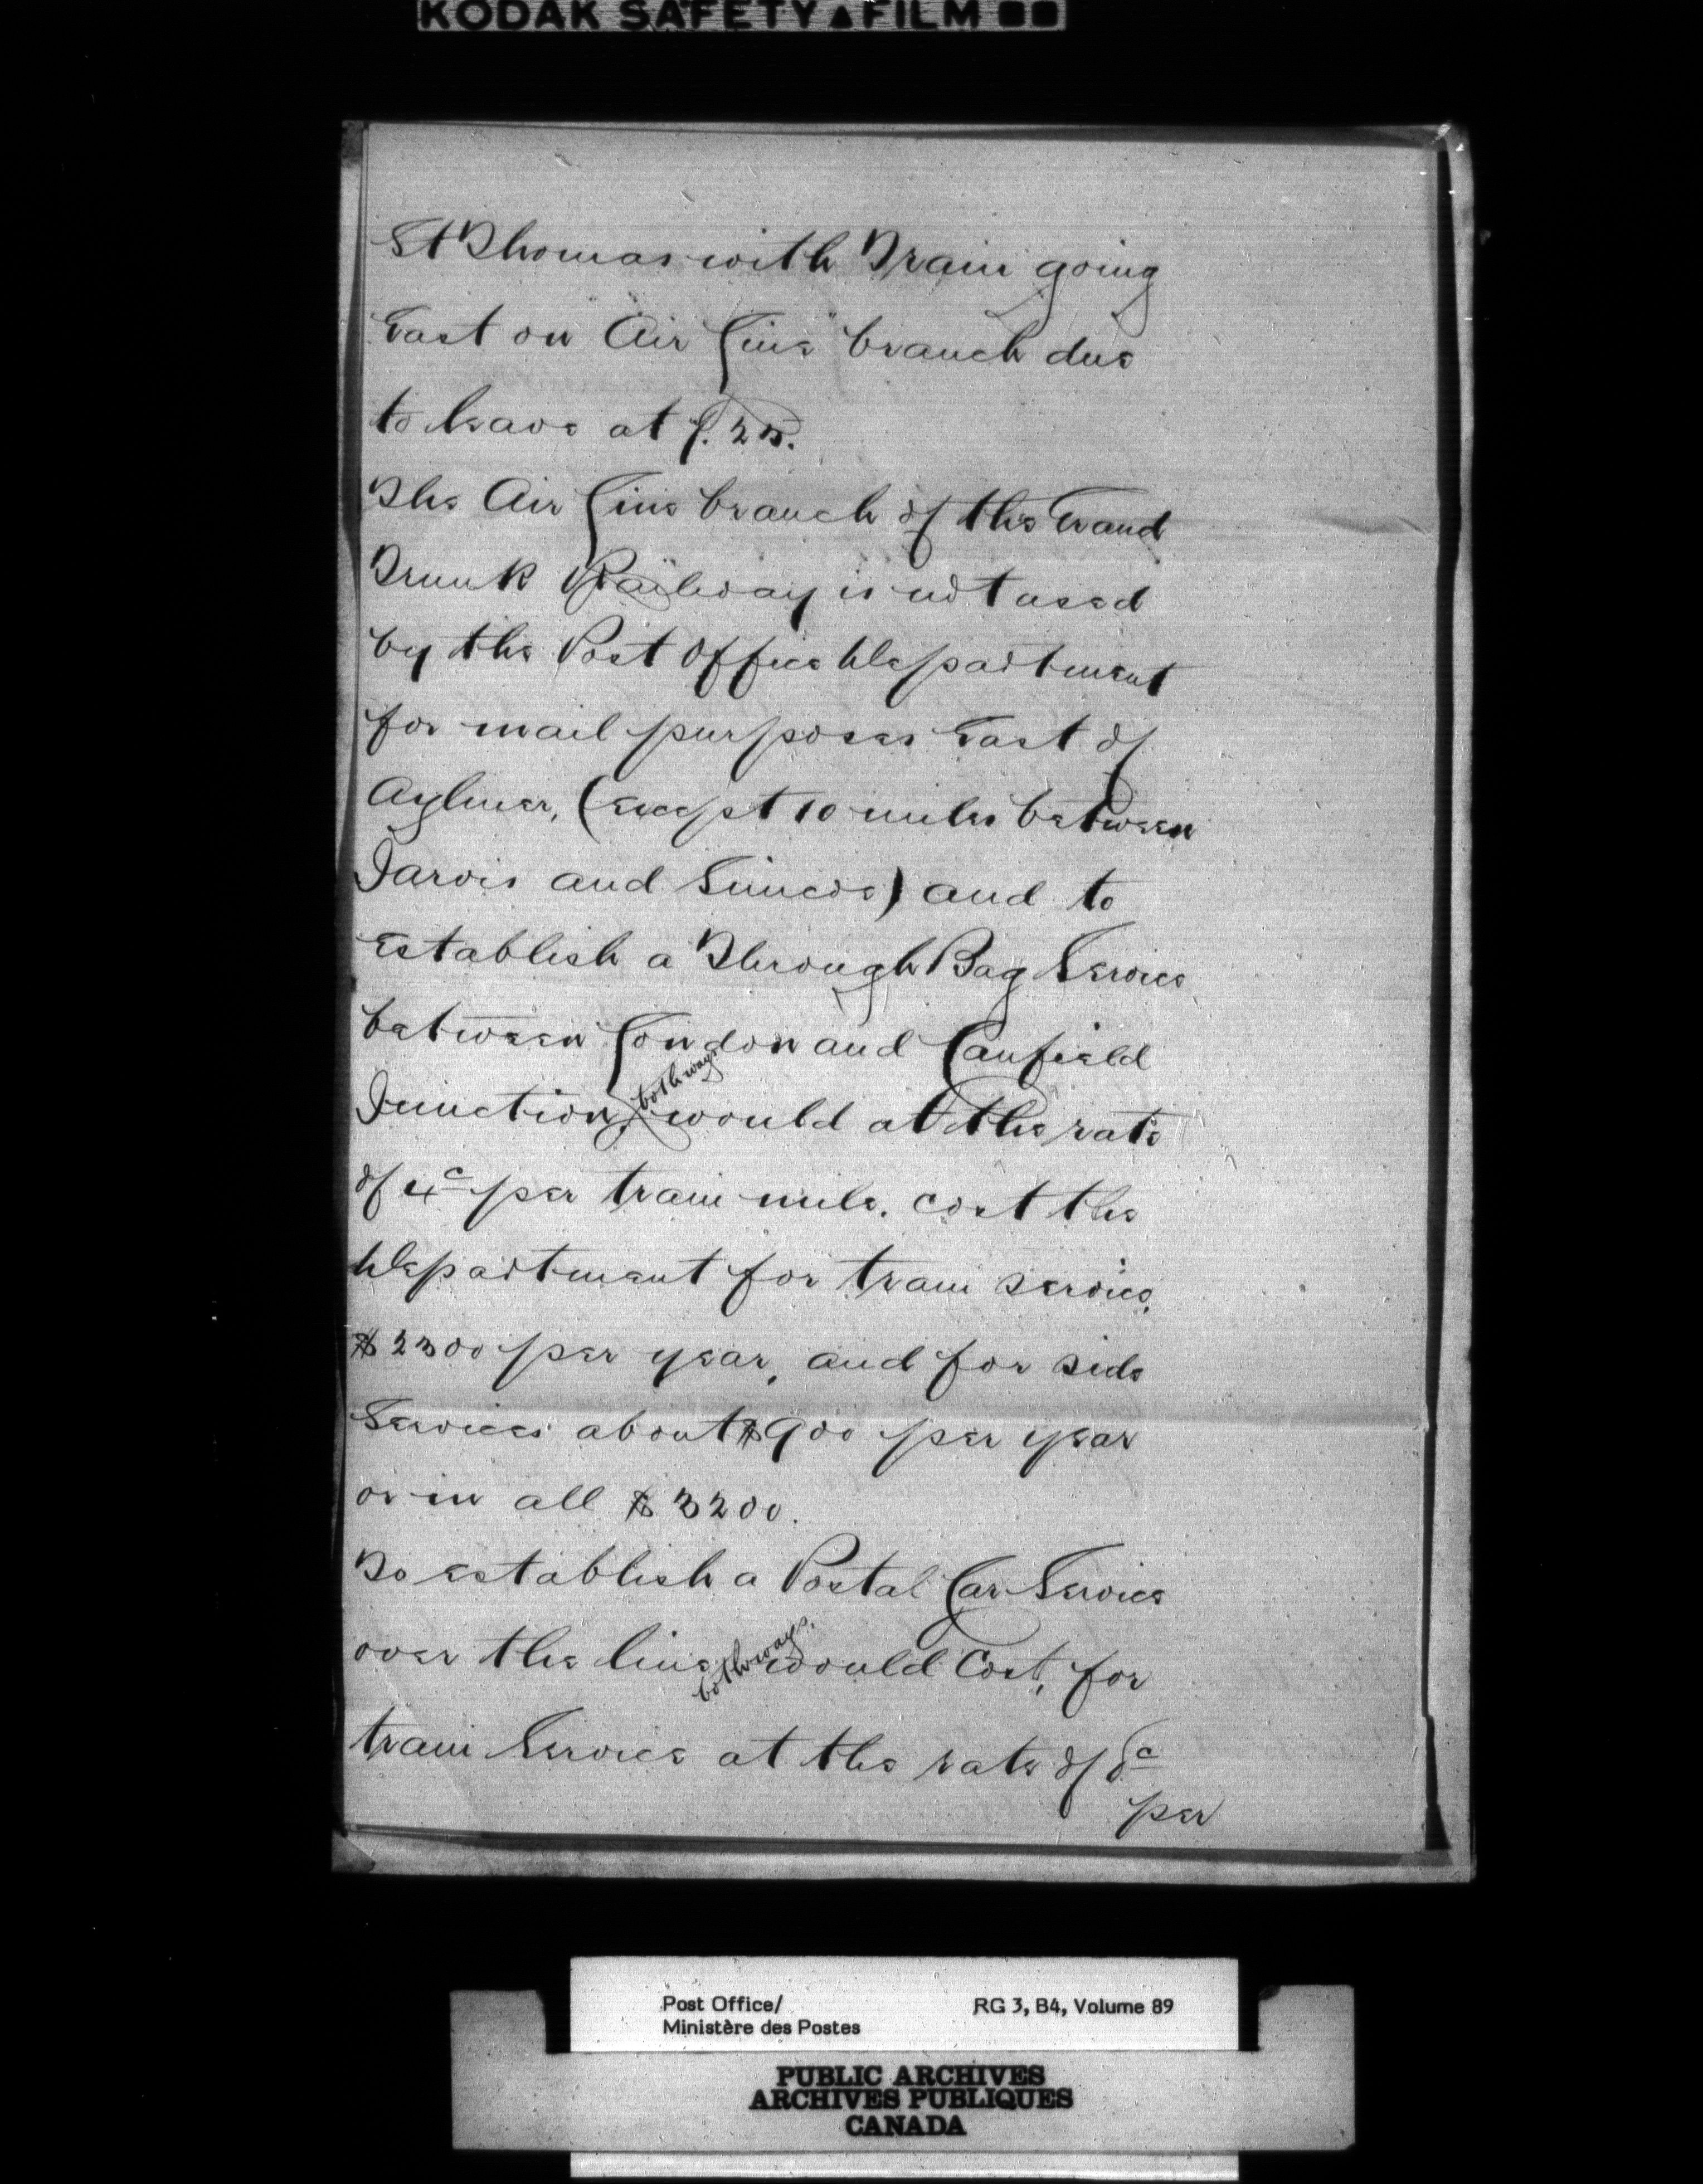 KODAK SAFETY FILM
St Thomas with Train going
East on Air Line branch due
to leave at
The Air Line branch of the Grand
Trunk Railway is not used
by the Post Office Department
for mail purposes East of
Aylmer, (except 10 miles between
Jarvis and Simcoe) and to
establish a Through Bag Service
between London and Canfield
Junction, both ways would at the rate
of 4c per train mile. cost the
Department for train service,
$2300 per year, and for side
Services about $900 per year
or in all $3200.
To establish a Postal Car Service
over the line both ways. would cost, for
train Service at the rate of 8c
per
Post Office/
Ministère des Postes
RG 3, B4, Volume 89
PUBLIC ARCHIVES
ARCHIVES PUBLIQUES
CANADA